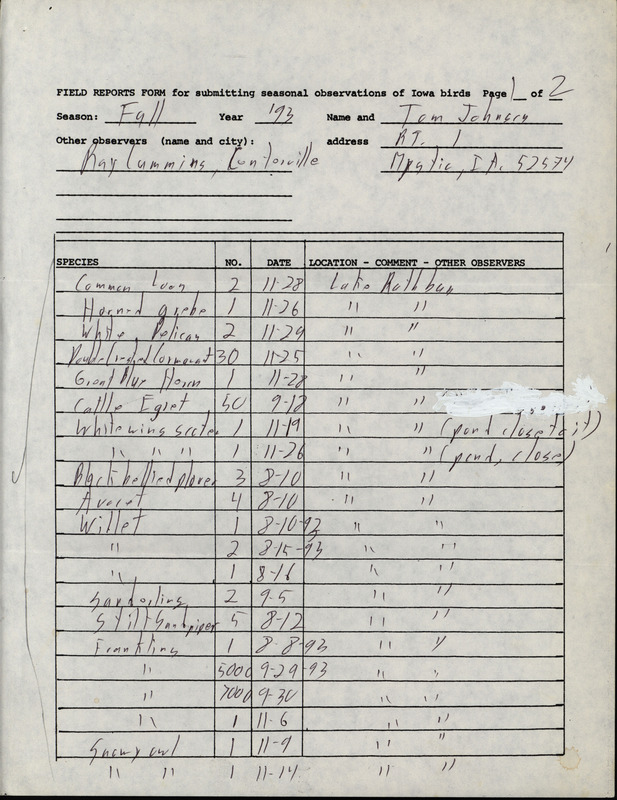 FIELD REPORTS FORM for submitting seasonal observations of Iowa birds Page 1 of 2
Season: Fall Year '93 Name and Tom Johnson
Other observers (name and city): address RT. 1
Ray Cummins, Centerville Mystic, IA. 52574
SPECIES NO. DATE LOCATION - COMMENT - OTHER OBSERVERS
Common Loon 2 11-28 Lake Rathbun
Horned grebe 1 11-26 " "
White Pelican 2 11-29 " "
Double crested Cormorant 30 11-25 " "
Great Blue Heron 1 11-28 " "
Cattle Egret 50 9-12 " "
White wing scoter 1 11-19 " " (pond close to it)
" " " 1 11-26 " " (pond, close)
Black bellied plover 3 8-10 " "
Avocet 4 8-10 " "
Willet 1 8-10-92 " "
" 2 8-15-93 " "
" 1 8-16 " "
Sanderling 2 9-5 " "
Stilt Sandpiper 5 8-12 " "
Franklins 1 8-8-93 " "
" 5000 9-29-93 " "
" 7000 9-30 " "
" 1 11-6 " "
Snowy owl 1 11-9 " "
" " 1 11-14 " "